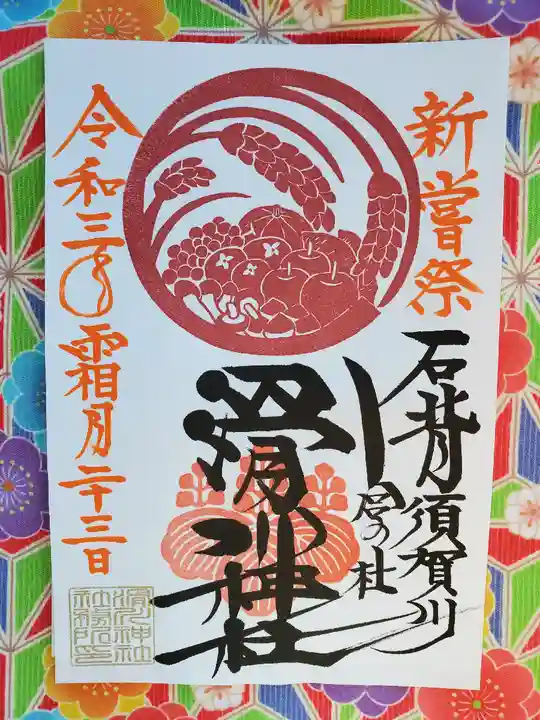 新嘗祭
石背須賀川
仕合の杜
滑川神社
令和三年
霜月二十三日
滑川神社社務所之印